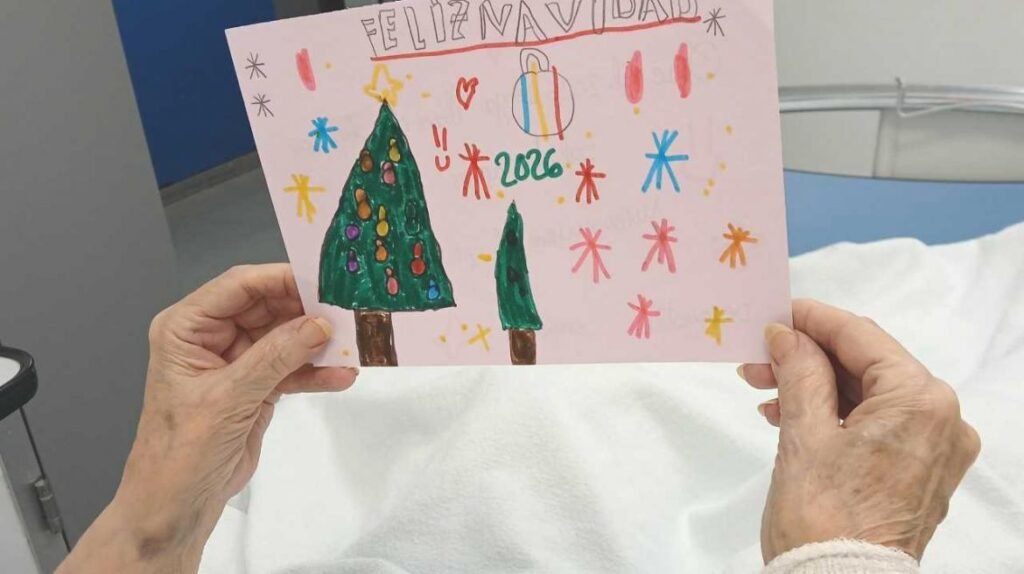 FELIZ NAVIDAD
2026